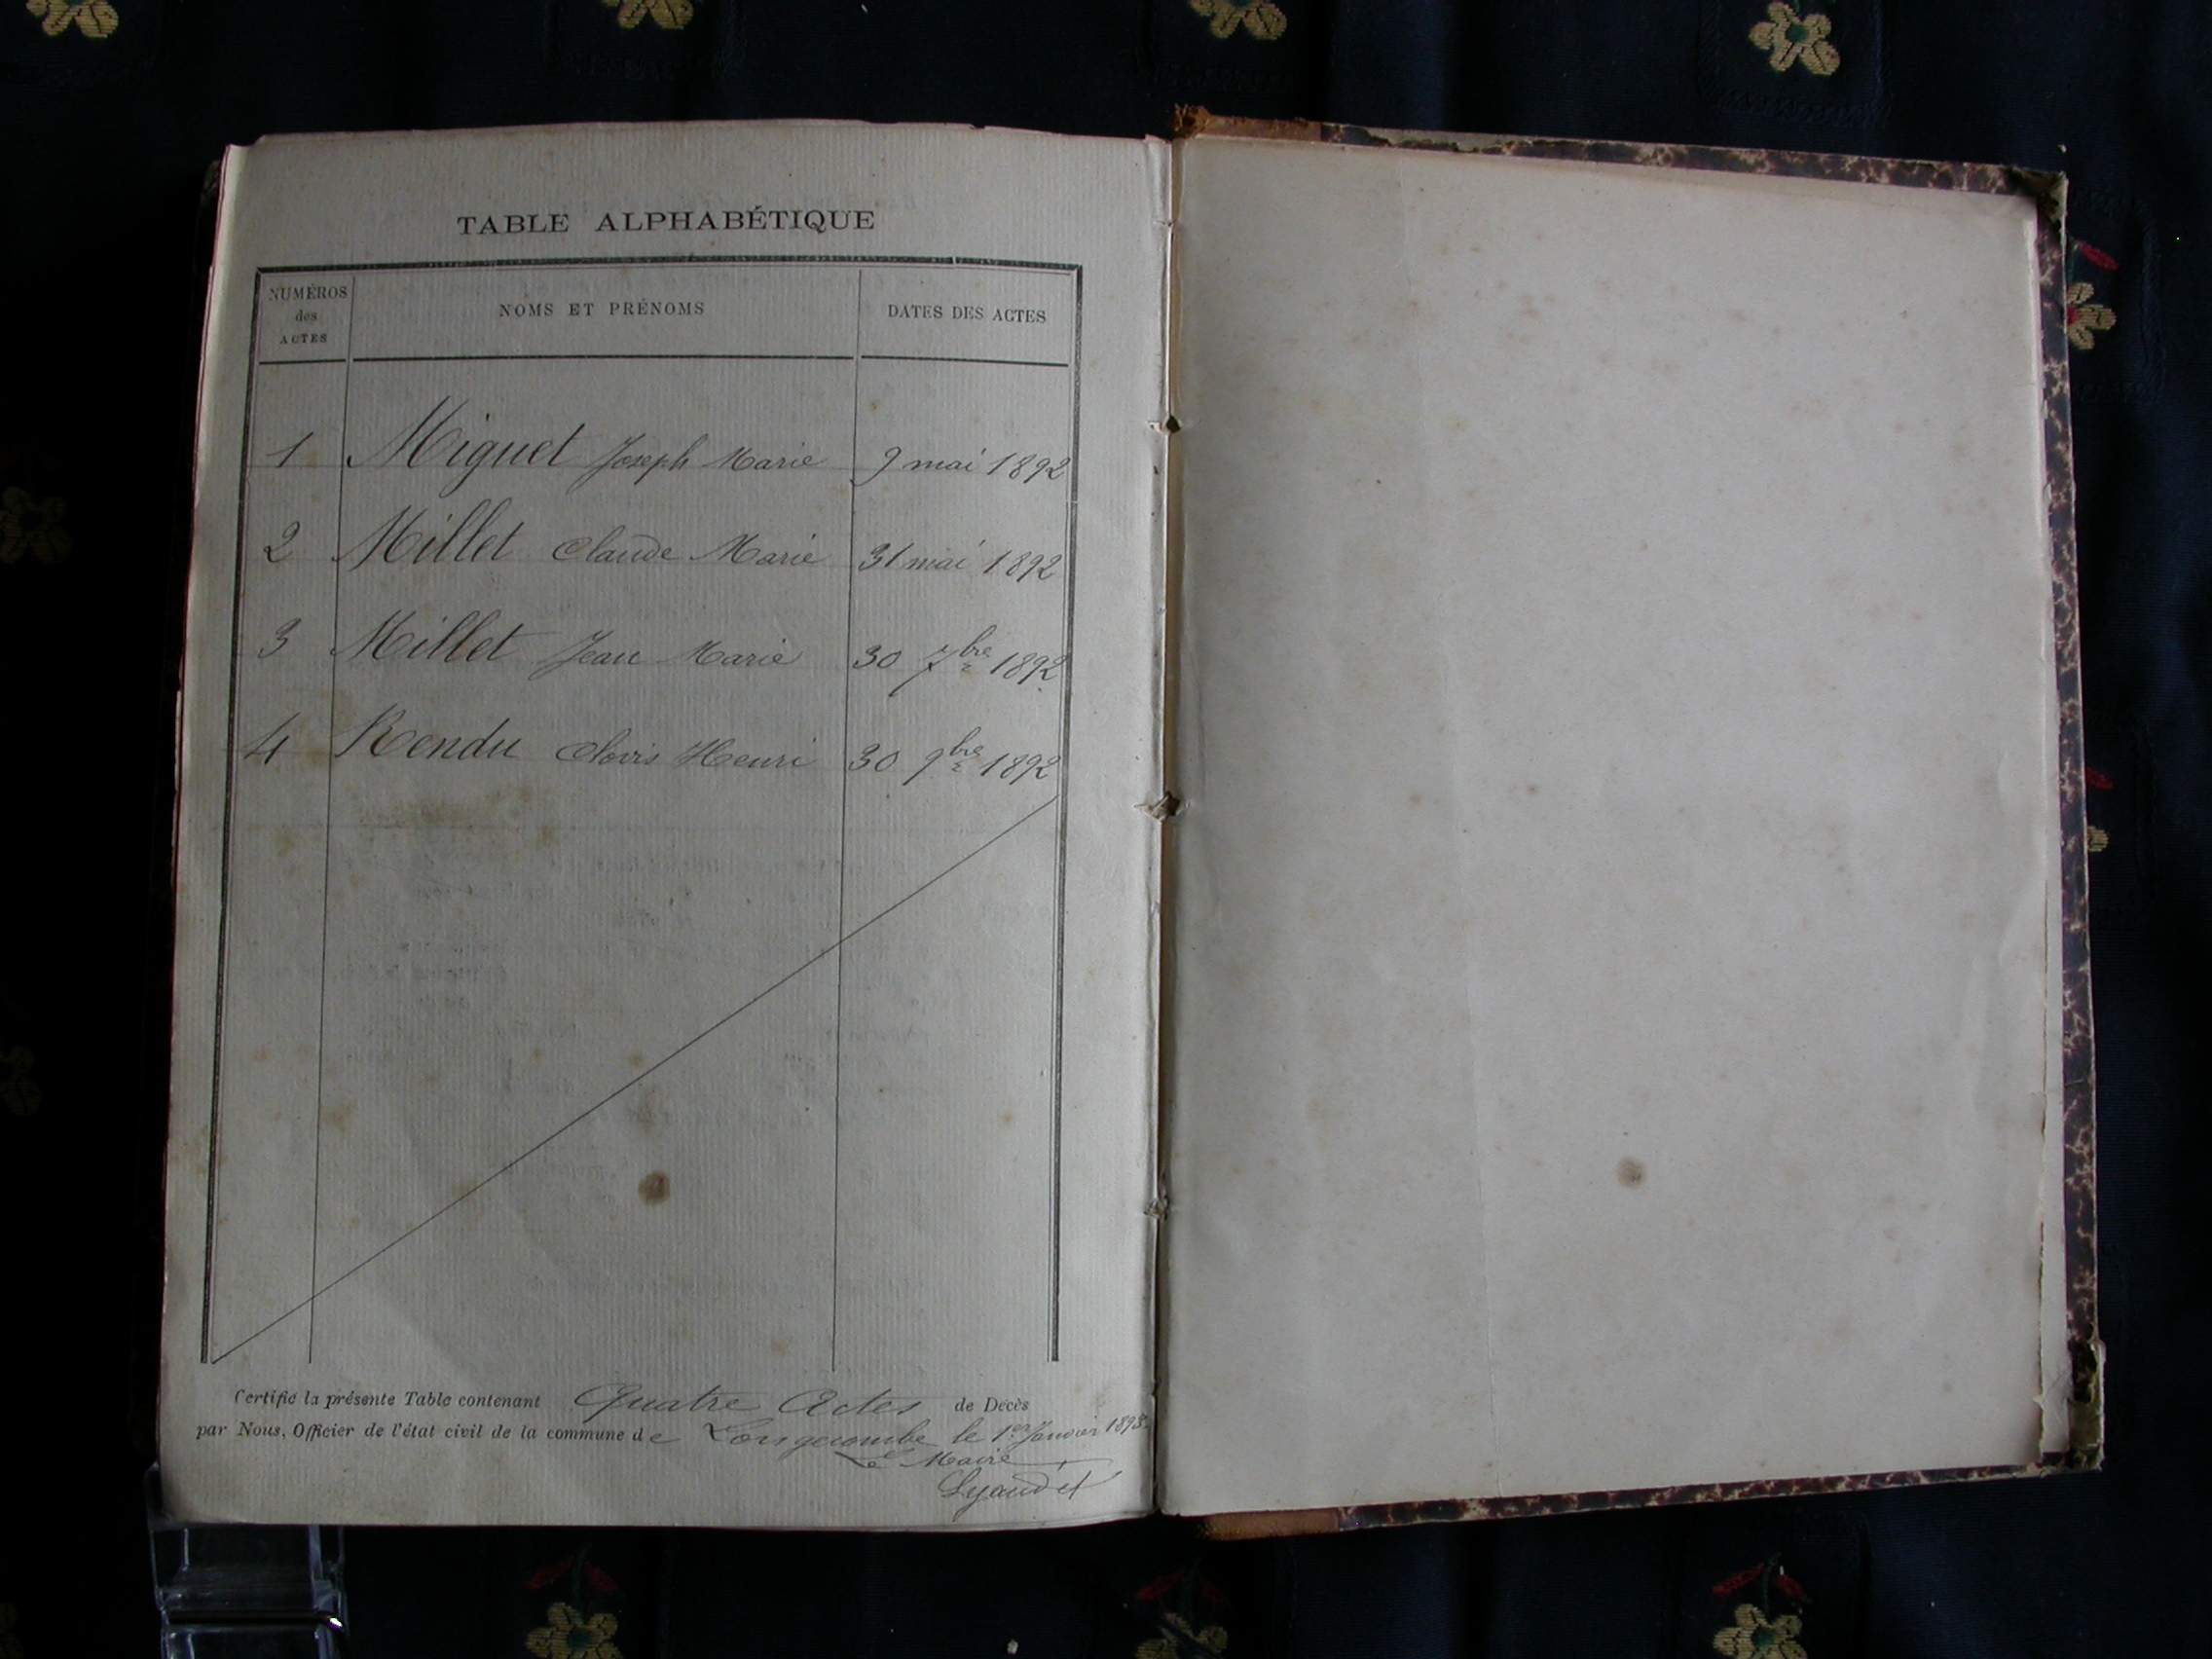 TABLE ALPHABÉTIQUE
NUMÉROS
des
ACTES
NOMS ET PRÉNOMS
DATES DES ACTES
1 Miguet Joseph Marie 9 mai 1892
2 Millet Claude Marie 31 mai 1892
3 Millet Jean Marie 30 7bre 1892
4 Rendu Clovis Henri 30 9bre 1892
Certifié la présente Table contenant Quatre Actes de Décès
par Nous, Officier de l'état civil de la commune de Longecombe le 1er Janvier 1893
Le Maire
Lyaudet